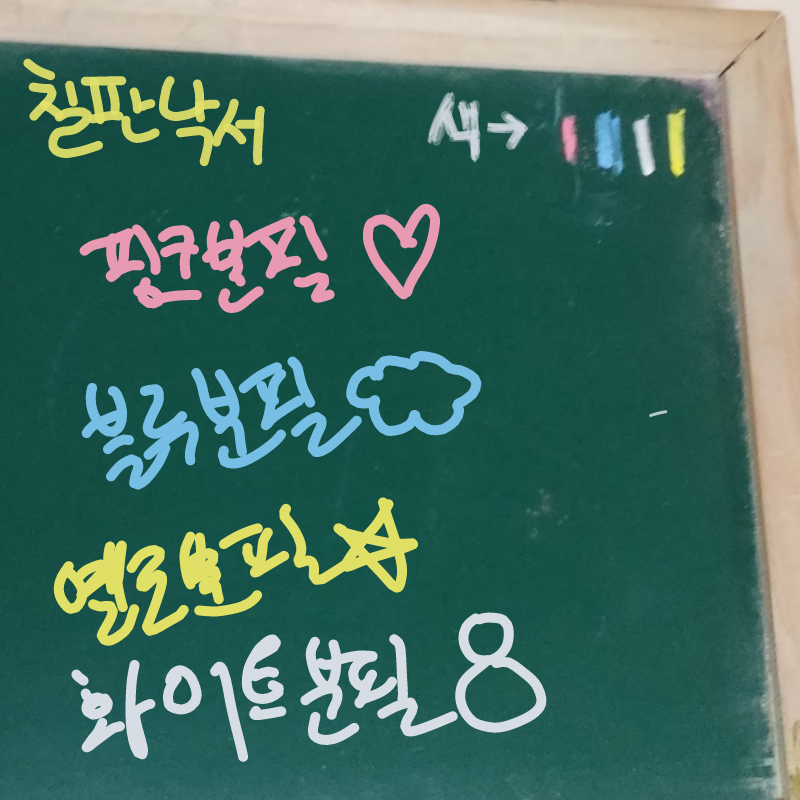 칠판낙서
색→
핑크분필
블루분필
옐로분필
화이트분필